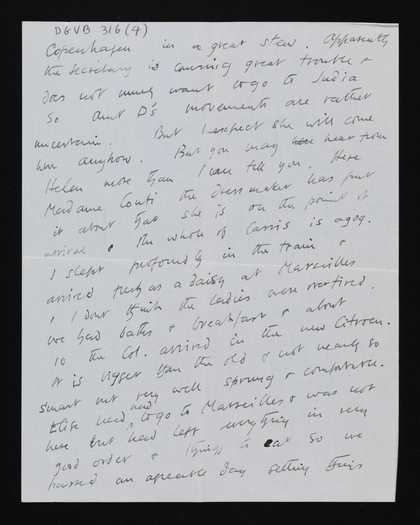 DGVB 316 (4)
Copenhagen in a great stew. Apparently
the Secretary is causing great trouble &
does not much want to go to India
So Aunt D's movements are rather
uncertain. But I expect she will come
here anyhow. But you may hear from
Helen more than I can tell you. Here
Madame Conti the Dressmaker has put
it about that she is on the point of
arrival & the whole of Cassis is agog.
I slept profoundly in the train &
arrived fresh as a daisy at Marseilles
, I dont think the ladies were
we had baths & breakfast & about
10 the Col. arrived in the new Citroen.
It is bigger than the old & not nearly so
smart but very well sprung & comfortable.
Elise had had to go to Marseilles & was not
here but had left everything in very
good order & things to eat so we
passed an agreeable day setting things